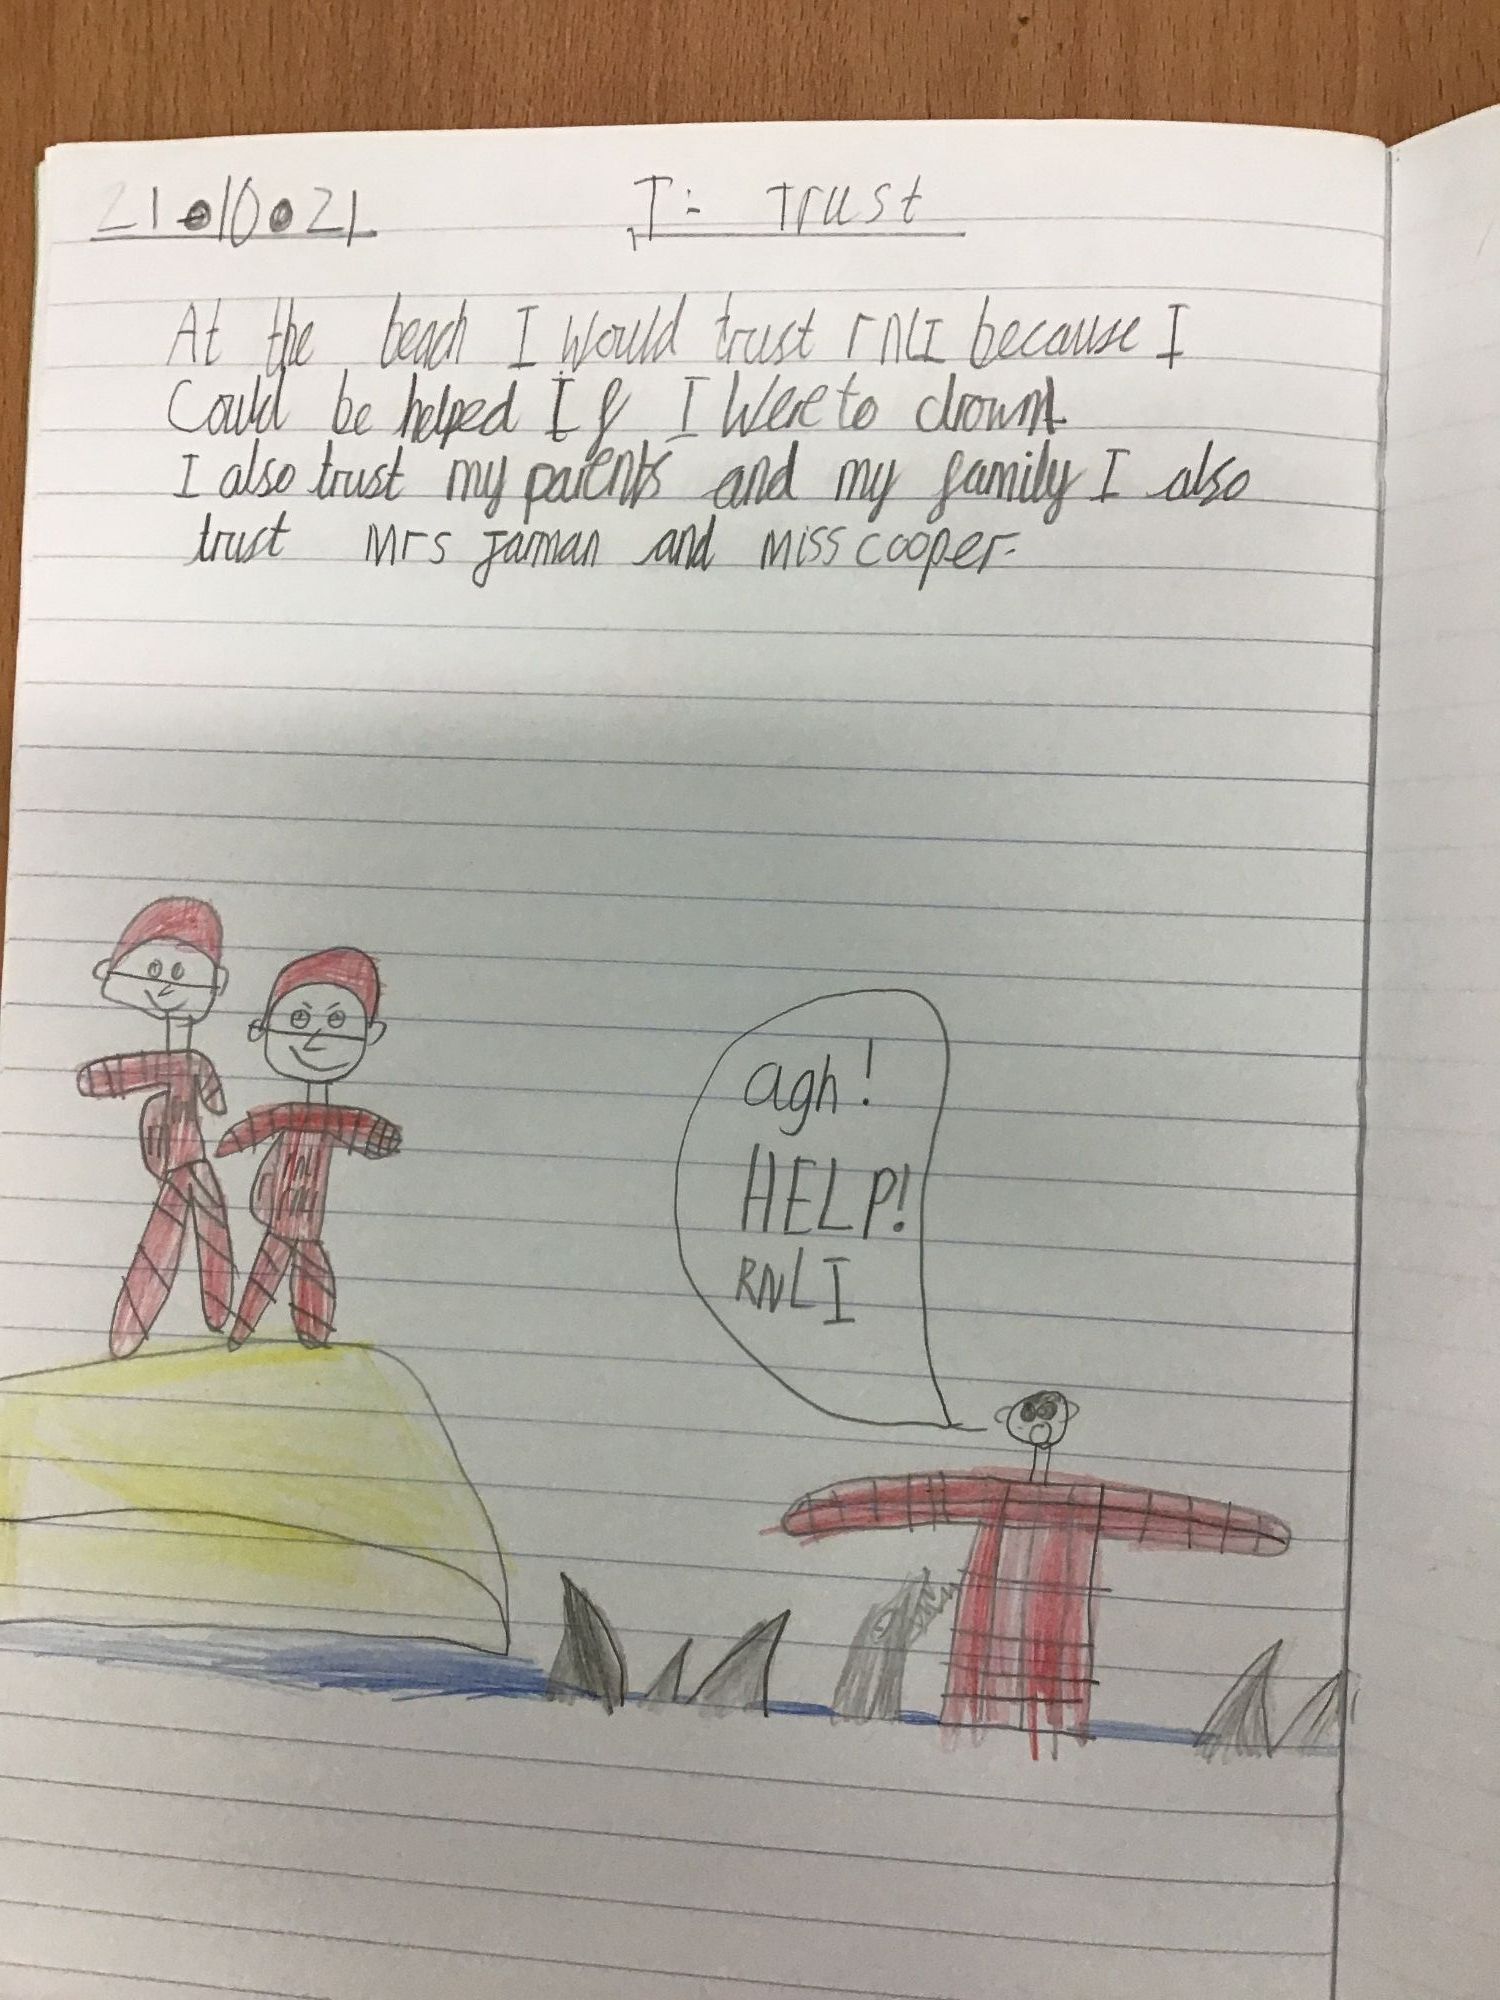 21.10.21 T:- Trust
At the beach I would trust rnLI because I
Could be helped If I Were to drown
I also trust my parents and my family I also
trust Mrs Jarman and Miss cooper.
agh!
HELP!
RNLI